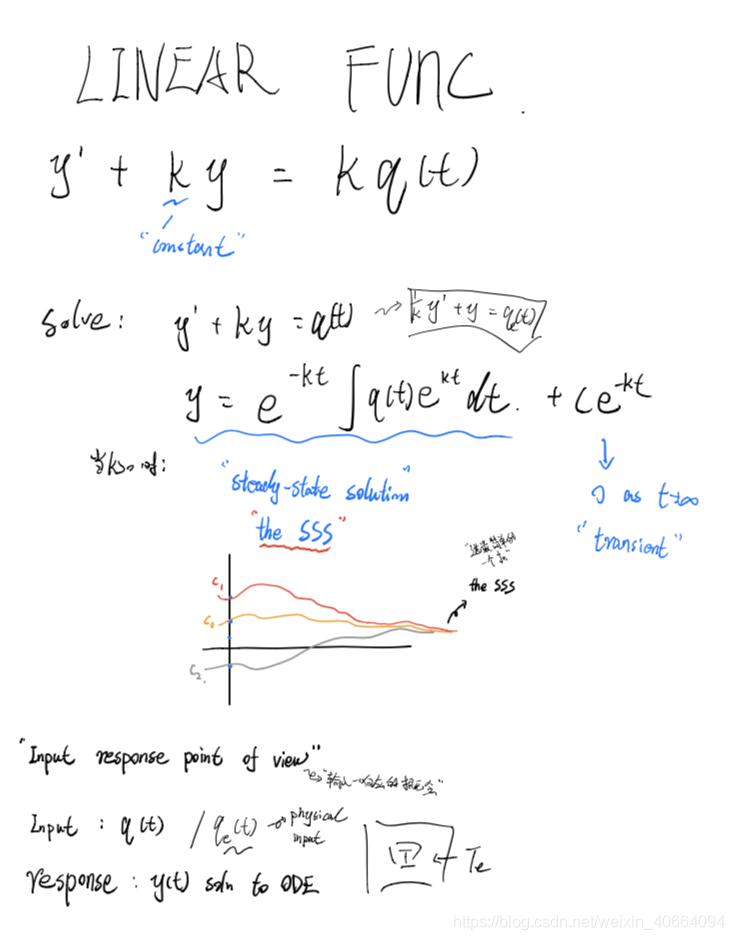 LINEAR FUNC.
y' + ky = kq(t)
"constant"
solve: y' + ky = q(t) ⇝ 1/k y' + y = qₑ(t)
y = e^{-kt} ∫q(t)e^{kt} dt. + ce^{-kt}
当k>0时:
"steady-state solution"
↓
0 as t→∞
"the SSS"
"transient"
C₁
C₀
C₂.
"选最简单的
一个就"
the SSS
"Input response point of view"
"输入-响应的
Input : q(t) / qₑ(t) → physical input
Response : y(t) soln to ODE
T ← Tₑ
https://blog.csdn.net/weixin_40664094